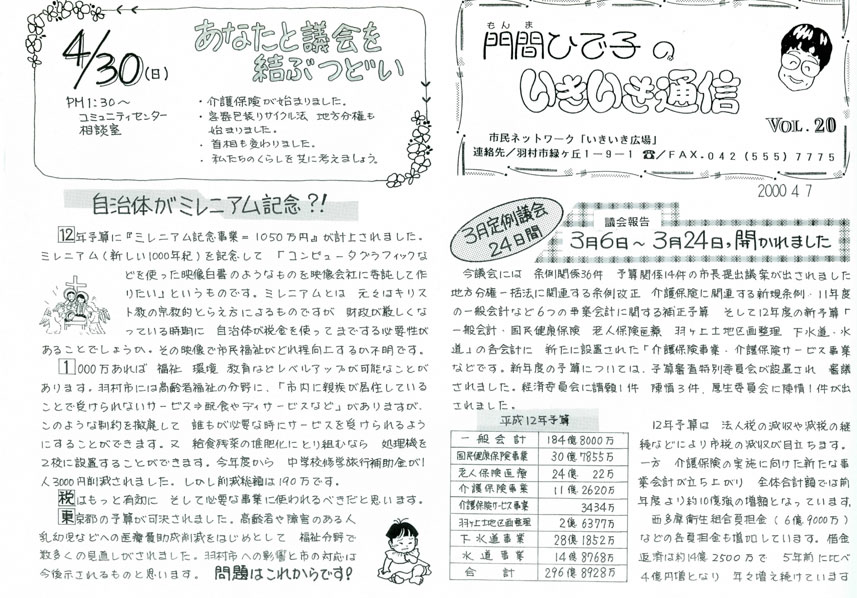 もんま
門間ひで子の
いきいき通信
VOL. 20
市民ネットワーク「いきいき広場」
連絡先／羽村市緑ヶ丘1－9－1 ☎/FAX.042(555)7775
2000 4 7
4/30(日)
PM1:30～
コミュニティセンター
相談室
あなたと議会を
結ぶつどい
・介護保険が始まりました。
・容器包装リサイクル法 地方分権も
始まりました。
・首相も変わりました。
・私たちのくらしを共に考えましょう。
自治体がミレニアム記念?!
12年予算に『ミレニアム記念事業＝1050万円』が計上されました。
ミレニアム(新しい1000年紀)を記念して「コンピュータグラフィックな
どを使った映像白書のようなものを映像会社に委託して作
りたい」というものです。ミレニアムとは 元々はキリス
ト教の宗教的とらえ方によるものですが 財政が厳しくな
っている時期に 自治体が税金を使ってまでする必要性が
あることでしょうか。その映像で市民福祉がどれ程向上するか不明です。
1000万あれば 福祉 環境 教育などレベルアップが可能なことが
あります。羽村市には高齢者福祉の分野に、「市内に親族が居住している
ことで受けられないサービス⇒配食やデイサービスなど」がありますが、
このような制約を撤廃して 誰もが必要な時にサービスを受けられるよう
にすることができます。又 給食残菜の堆肥化にとり組むなら 処理機を
2校に設置することができます。今年度から 中学校修学旅行補助金が1
人3000円削減されました。しかし削減総額は190万です。
税はもっと有効に そして必要な事業に使われるべきだと思います。
東京都の予算が可決されました。高齢者や障害のある人
乳幼児などへの医療費助成削減をはじめとして 福祉分野で
数多くの見直しがされました。羽村市への影響と市の対応は
今後示されるものと思います。 問題はこれからです!
3月定例議会
24日間
議会報告
3月6日～3月24日,開かれました
今議会には 条例関係36件 予算関係14件の市長提出議案が出されました
地方分権一括法に関連する条例改正 介護保険に関連する新規条例・11年度
の一般会計など6つの事業会計に関する補正予算 そして12年度の新予算「
一般会計・国民健康保険 老人保険医療 羽ヶ上土地区画整理 下水道・水
道」の各会計に 新たに設置された「介護保険事業・介護保険サービス事業
などです。新年度の予算については、予算審査特別委員会が設置され 審議
されました。経済委員会に請願1件 陳情3件、厚生委員会に陳情1件が出
されました。
平成12年予算
一般会計 184億8000万
国民健康保険事業 30億7855万
老人保険医療 24億 22万
介護保険事業 11億2620万
介護保険サービス事業 3434万
羽ヶ上土地区画整理 2億6377万
下水道事業 28億1852万
水道事業 14億8768万
合計 296億8928万
12年予算は 法人税の減収や減税の継
続などにより市税の減収が目立ちます。
一方 介護保険の実施に向けた新たな事
業会計が立ち上がり 全体合計額では前
年度より約10億強の増額となっています。
西多摩衛生組合負担金(6億9000万)
などの各負担金も増加しています。借金
返済は約14億2500万で 5年前に比べ
4億円増となり 年々増え続けています